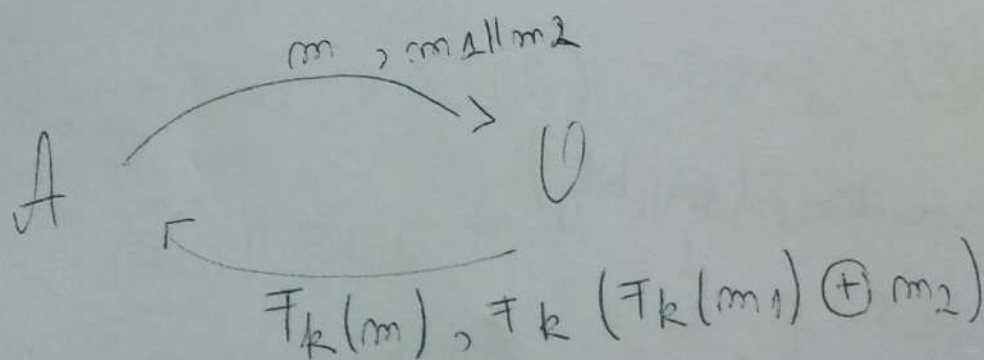 m , m1||m2
A O
F_k(m), F_k (F_k(m1) ⊕ m2)